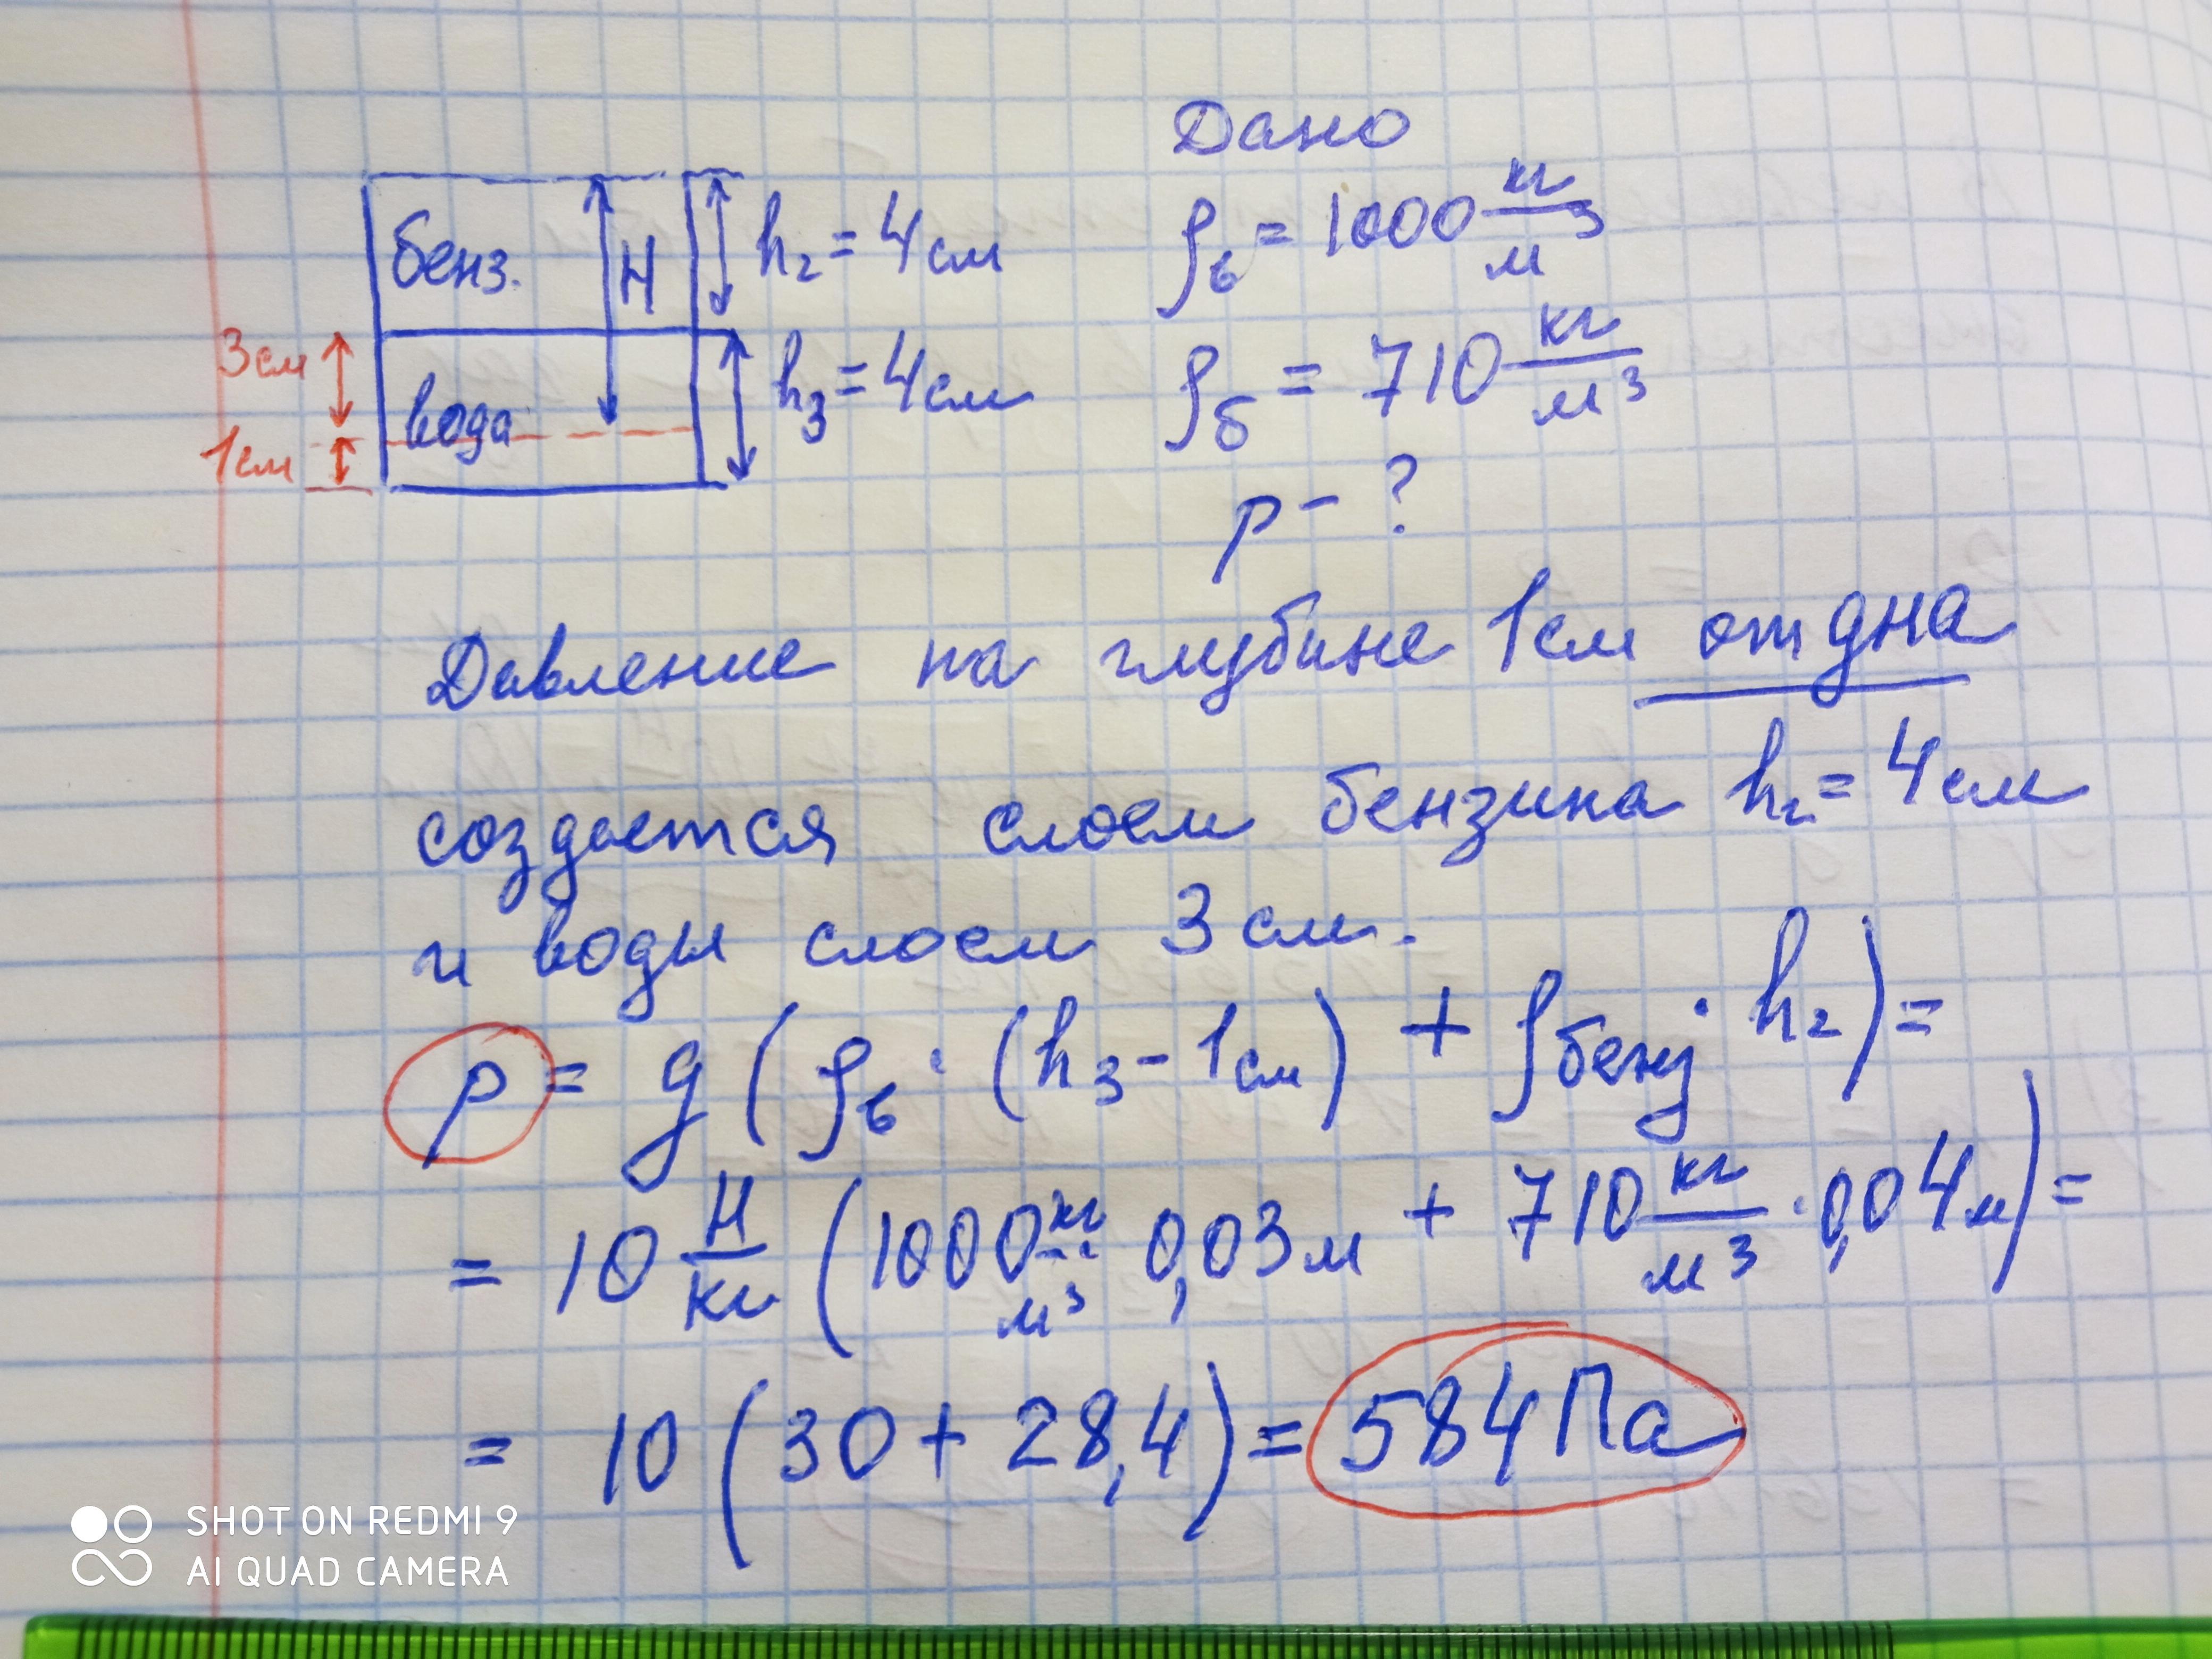 Дано
бенз.
H
h₂ = 4 см
ρв = 1000 кг/м³
3 см
вода
h₃ = 4 см
ρб = 710 кг/м³
1 см
p - ?
Давление на глубине 1 см от дна
создается слоем бензина h₂ = 4 см
и воды слоем 3 см.
p = g (ρв · (h₃ - 1 см) + ρбенз · h₂) =
= 10 Н/кг (1000 кг/м³ · 0,03 м + 710 кг/м³ · 0,04 м) =
= 10 (30 + 28,4) = 584 Па
SHOT ON REDMI 9
AI QUAD CAMERA